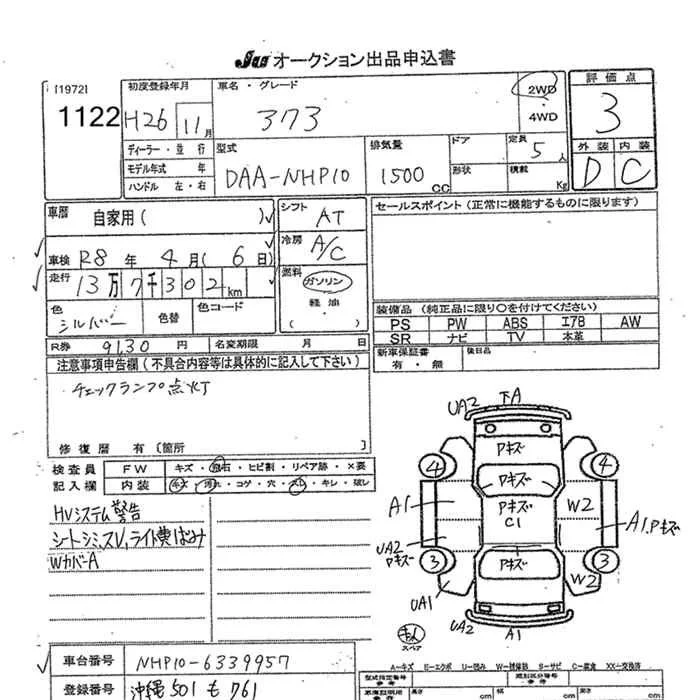 JU オークション出品申込書
[1972]
1122
初度登録年月
H26 11月
車名・グレード
373
2WD
・
4WD
評価点
3
外装 内装
D C
ディーラー・並行
モデル年式 年
ハンドル 左・右
型式
DAA-NHP10
排気量
1500 CC
ドア
形状
定員
5人
積載
Kg
車歴 自家用( )
シフト AT
セールスポイント(正常に機能するものに限ります)
冷房 A/C
車検 R8 年 4 月( 6 日)
走行 13万7千302km
燃料
ガソリン
軽油
( )
色 シルバー
色替
色コード
装備品(純正品に限り○を付けてください)
PS PW ABS エアB AW
SR ナビ TV 本革
R券 9130 円 名変期限 月 日
新車保証書
有・無
後日品
注意事項申告欄(不具合内容等は具体的に記入して下さい)
チェックランプ点灯
修復歴 有〔箇所 〕
検査員
記入欄
FW キズ・飛石・ヒビ割・リペア跡・×要
内装 キズ・汚れ・コゲ・穴・スレ・キレ・破レ
HVシステム警告
シートシミ、スレ、ライト黄ばみ
WカバーA
UA2 下A
Pキズ
4 4
Pキズ
A1 Pキズ W2 A1.Pキズ
C1
UA2
Pキズ
3 Pキズ 3
UA1 W2
UA2 A1
スペア
A-キズ E-エクボ U-凹み W-補修跡 S-サビ C-腐食 XX-交換済
車台番号 NHP10-6339957
型式指定番号
参考
類別区分番号
参考
登録番号 沖縄 501 も 761
車庫証明用
参考
高さ cm cm cm